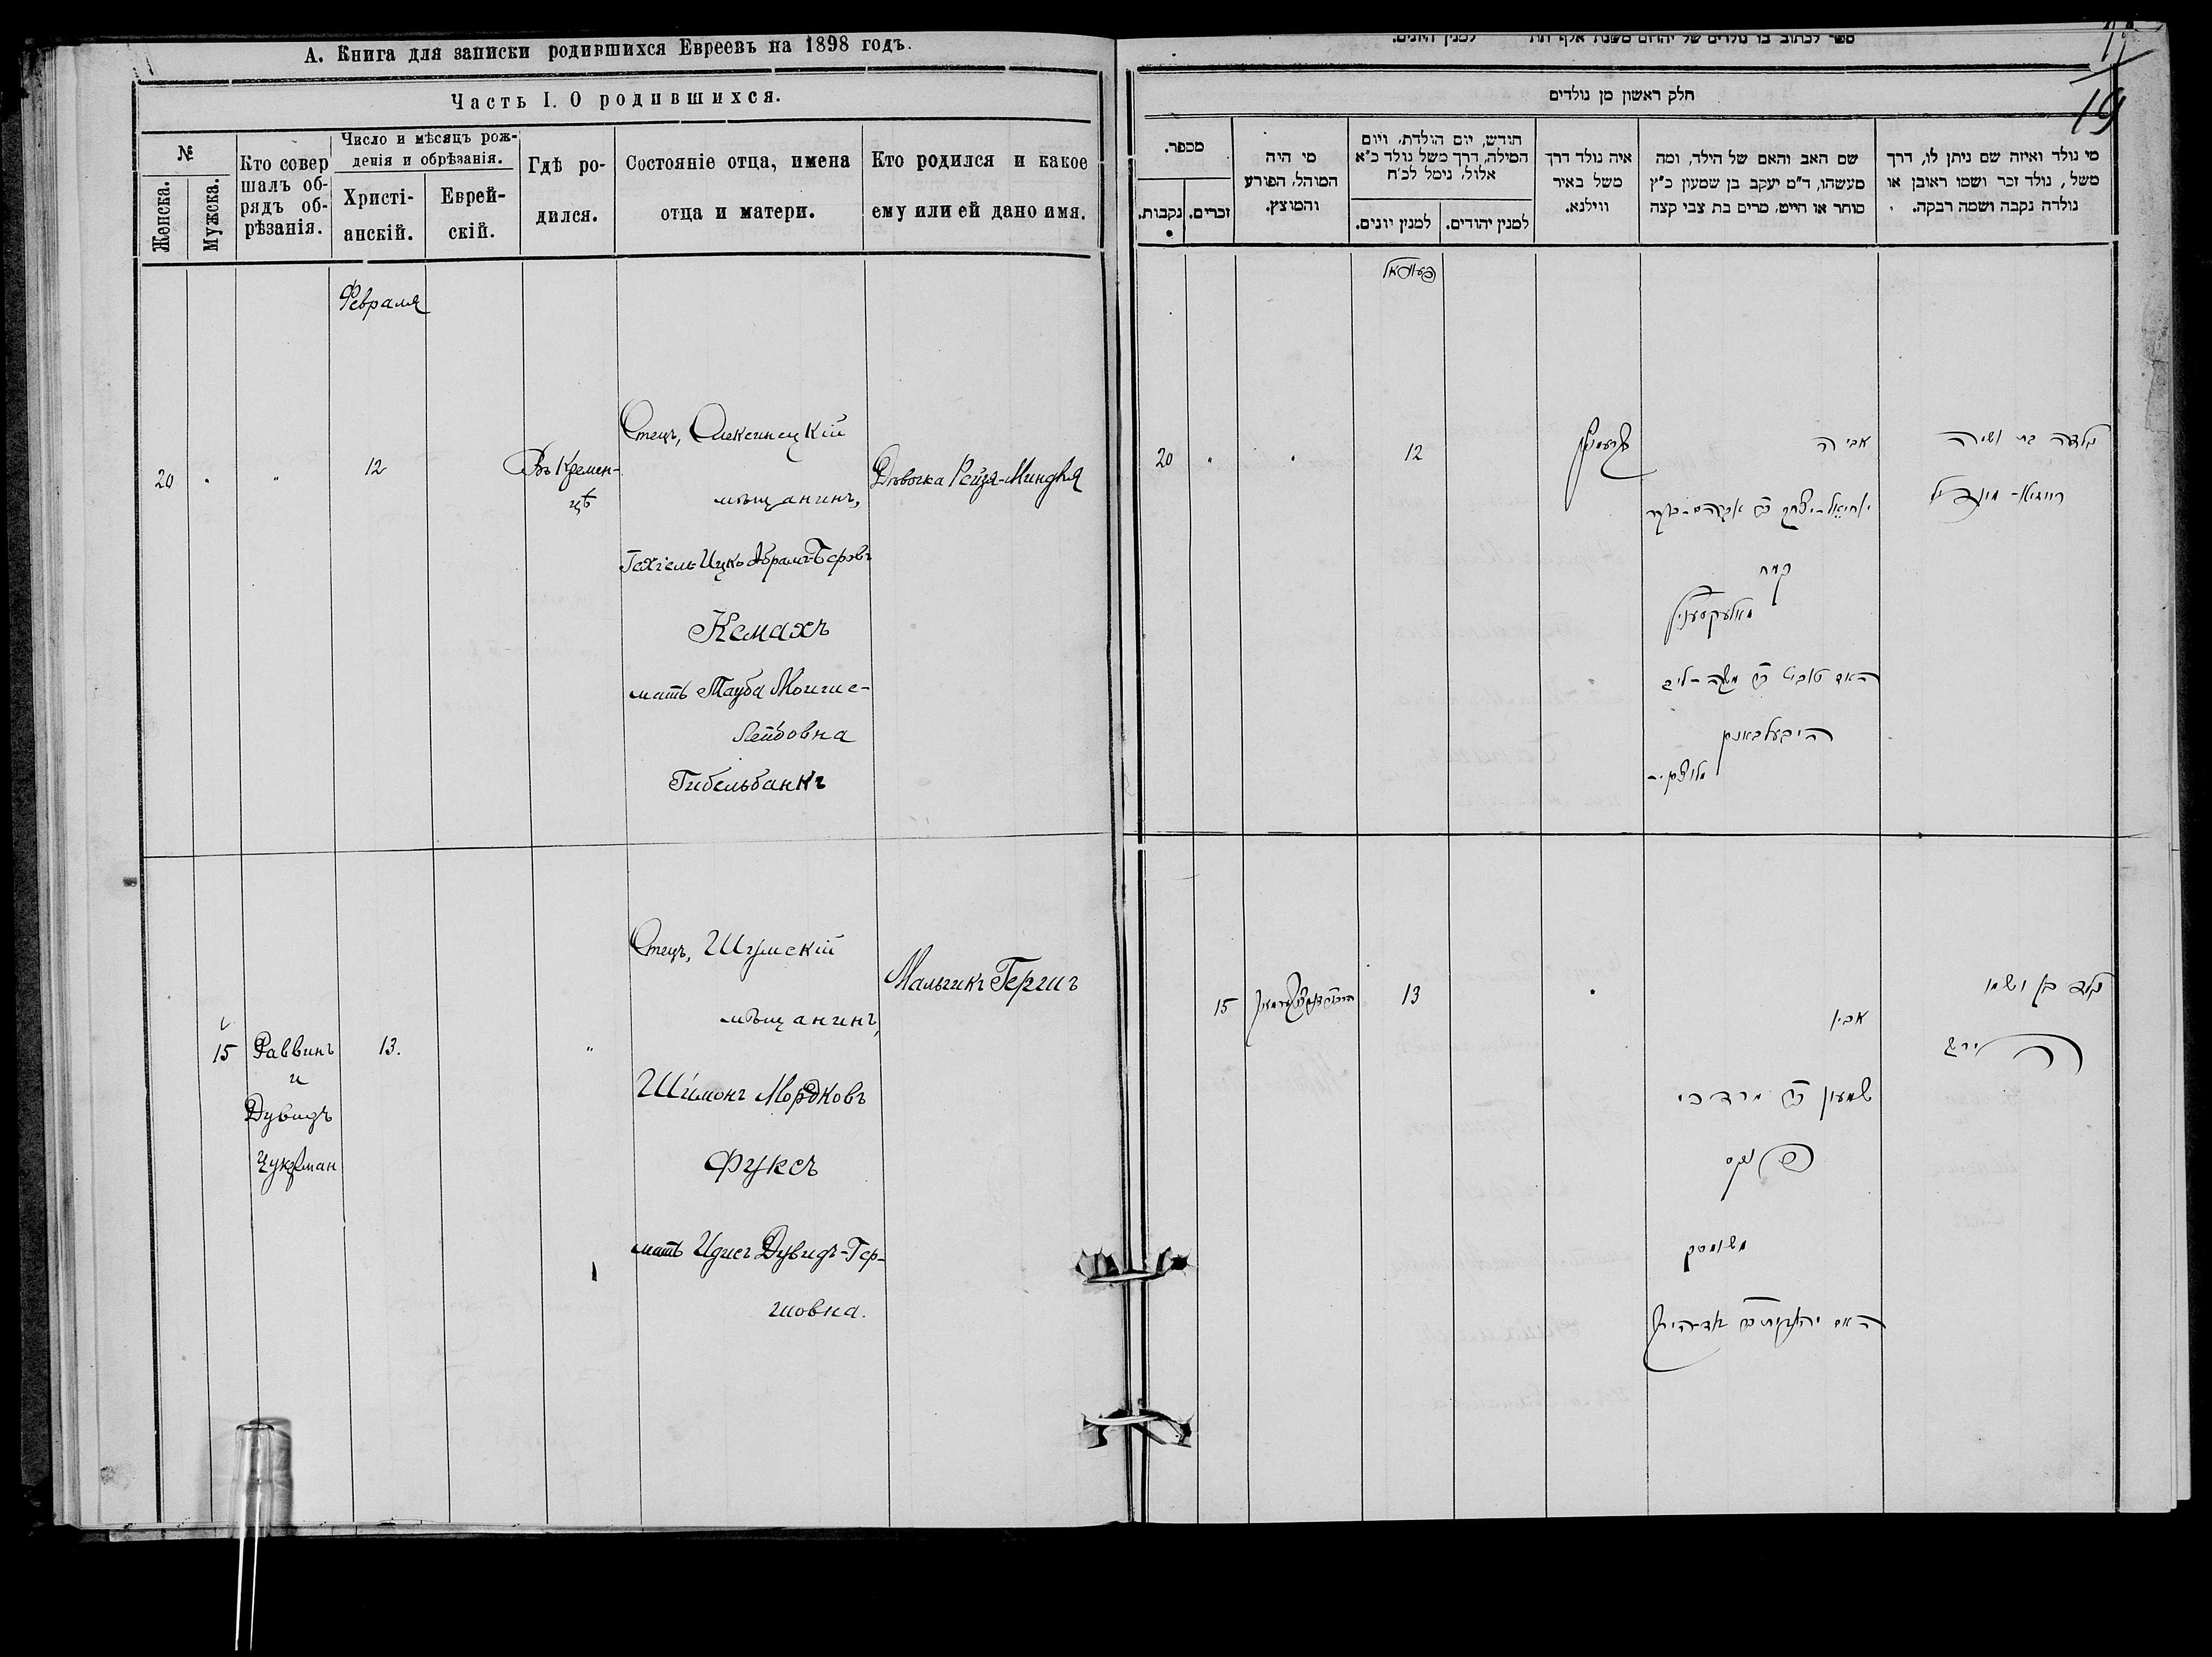 А. Книга для записки родившихся Евреевъ на 1898 годъ.
Часть I. О родившихся.
№
Женска.
Мужска.
Кто совер
шалъ об-
рядъ об-
рѣзанія.
Число и мѣсяцъ рож-
денія и обрѣзанія.
Христі-
анскій.
Еврей-
скій.
Гдѣ ро-
дился.
Состояніе отца, имена
отца и матери.
Кто родился и какое
ему или ей дано имя.
Февраля
20
"
"
12
Въ Кремен-
цѣ
Отецъ, Олексинецкій
мѣщанинъ,
Іехіель-Ицко Абрамъ-Беровъ
Кемахъ
мать Тауба Мошие-
Лейбовна
Гибельбанкъ
Дѣвочка Рейзя-Миндля
15
Раввинъ
и
Дувидъ
Цукерман
13.
"
Отецъ, Шумскій
мѣщанинъ,
Шимонъ Мордковъ
Фуксъ
мать Идисъ Дувидъ-Гер-
шовна.
Мальчикъ Гершъ
19
חלק ראשון מן נולדים
מכפר.
נקבות.
זכרים.
מי היה
המוהל, הפורע
והמוצץ.
חודש, יום הולדת, ויום
המילה, דרך משל נולד כ"א
אלול, נימל לכ"ח
למנין יונים.
למנין יהודים.
איה נולד דרך
משל באיר
ווילנא.
שם האב והאם של הילד, ומה
מעשהו, ד"מ יעקב בן שמעון כ"ץ
סוחר או חייט, מרים בת צבי קצה
מי נולד ואיזה שם ניתן לו, דרך
משל, נולד זכר ושמו ראובן או
נולדה נקבה ושמה רבקה.
20
12
אביה
קמח
נולדה בת ושמה
15
13
אביו
שמעון ב"ר מרדכי
פוקס
משומסק
נולד בן ושמו
הירש